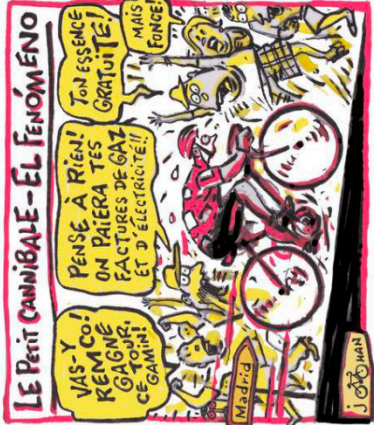 LE PETIT CANNIBALE - EL FENÓMENO
VAS-Y
REMCO!
GAGNE
CE TOUR,
GAMIN!
PENSE À RIEN!
ON PAIERA TES
FACTURES DE GAZ
ET D'ÉLECTRICITÉ!!
TON ESSENCE
GRATUITE!
MAIS
FONCE!
Madrid
JOHAN